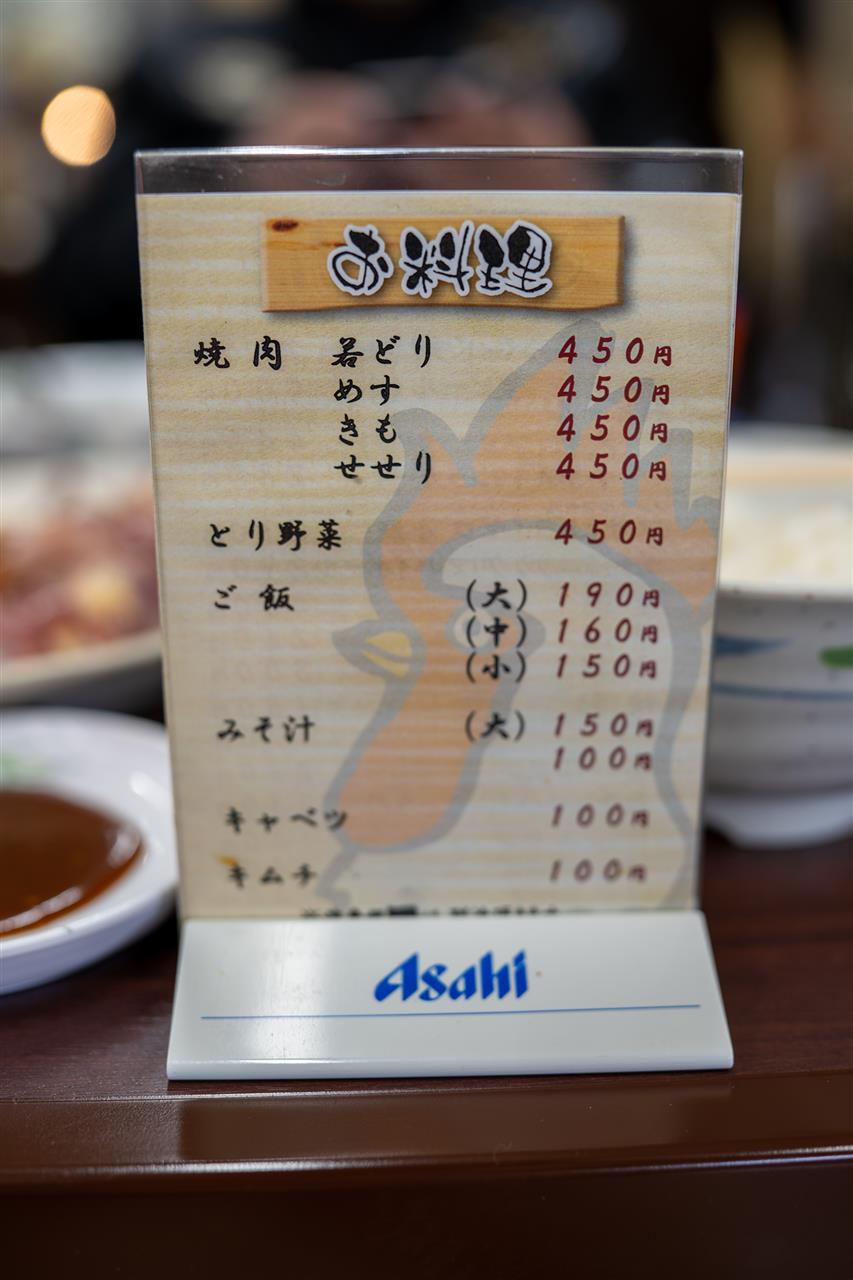 お料理
焼肉 若どり 450円
めす 450円
きも 450円
せせり 450円
とり野菜 450円
ご飯 (大) 190円
(中) 160円
(小) 150円
みそ汁 (大) 150円
100円
キャベツ 100円
キムチ 100円
Asahi